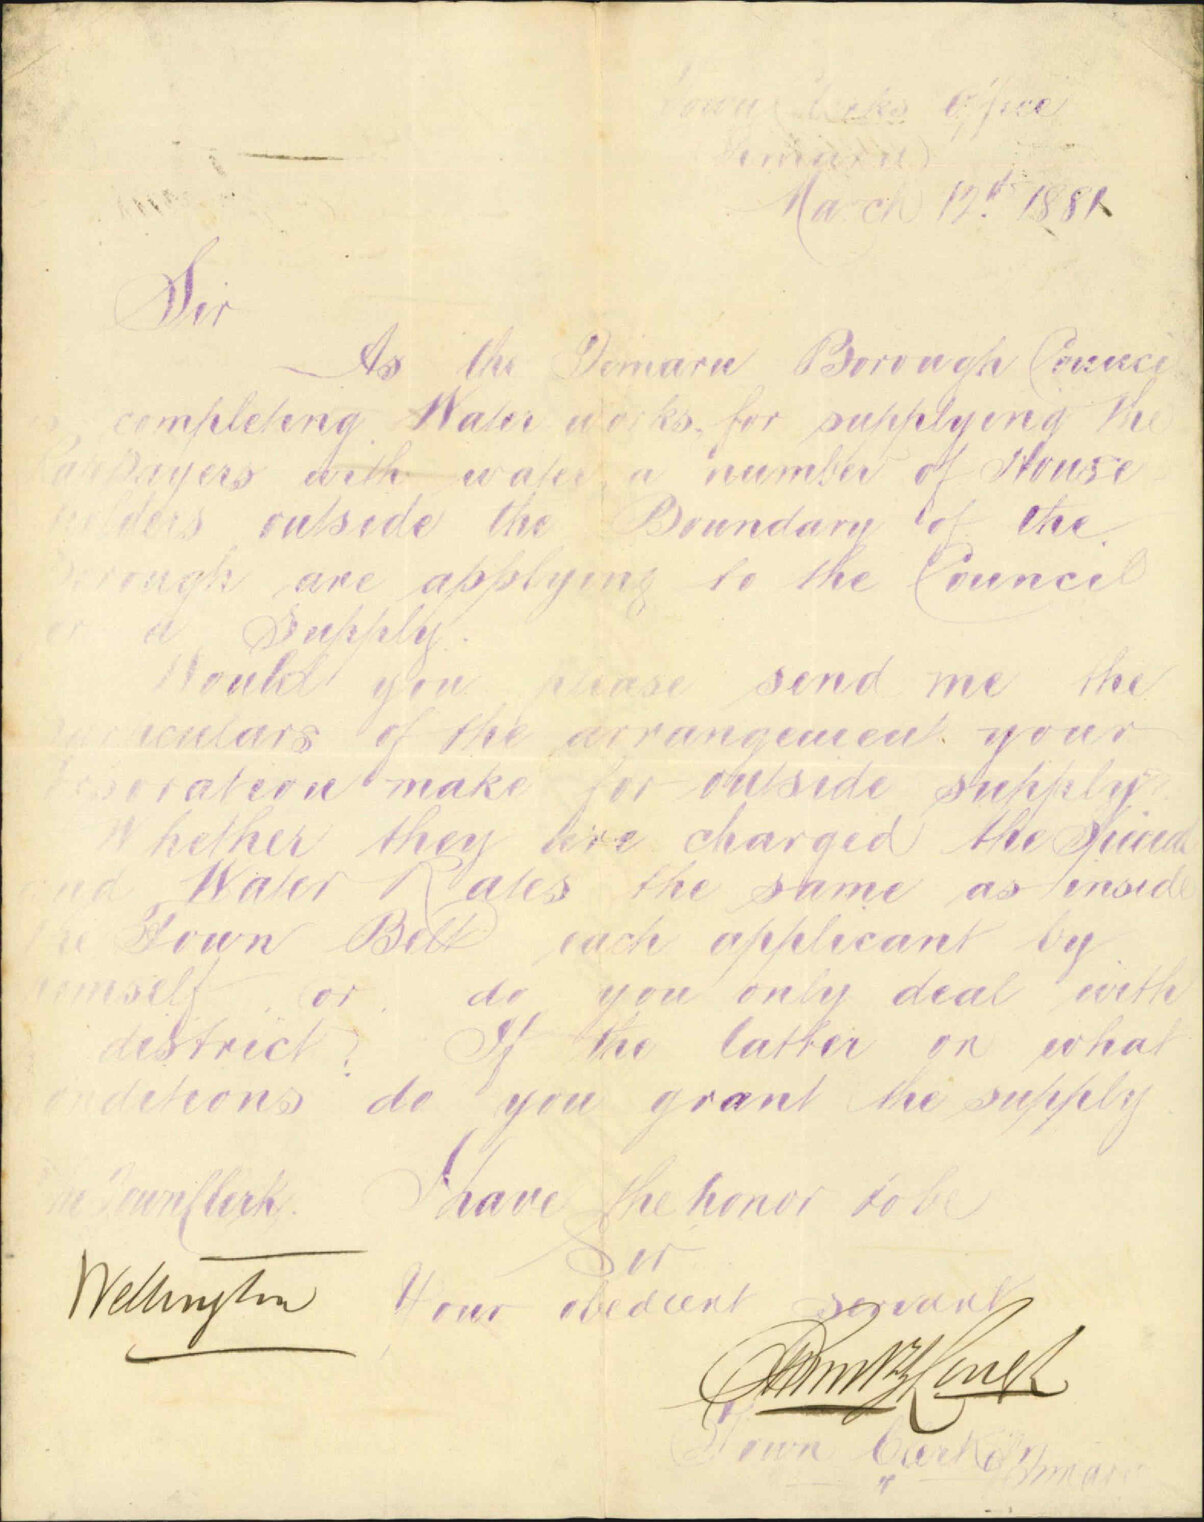 Town Clerks Office
Timaru
March 12th 1881
Sir
As the Timaru Borough Council
is completing Water works for supplying the
Ratepayers with water a number of House
holders outside the Boundary of the
Borough are applying to the Council
for a Supply.
Would you please send me the
particulars of the arrangement your
Corporation make for outside supply?
Whether they are charged the Special
and Water Rates the same as inside
the Town Belt each applicant by
himself or do you only deal with
district? If the latter on what
conditions do you grant the supply
I have the honor to be
Sir
Your obedient servant
The Town Clerk.
Wellington
Town Clerk Timaru